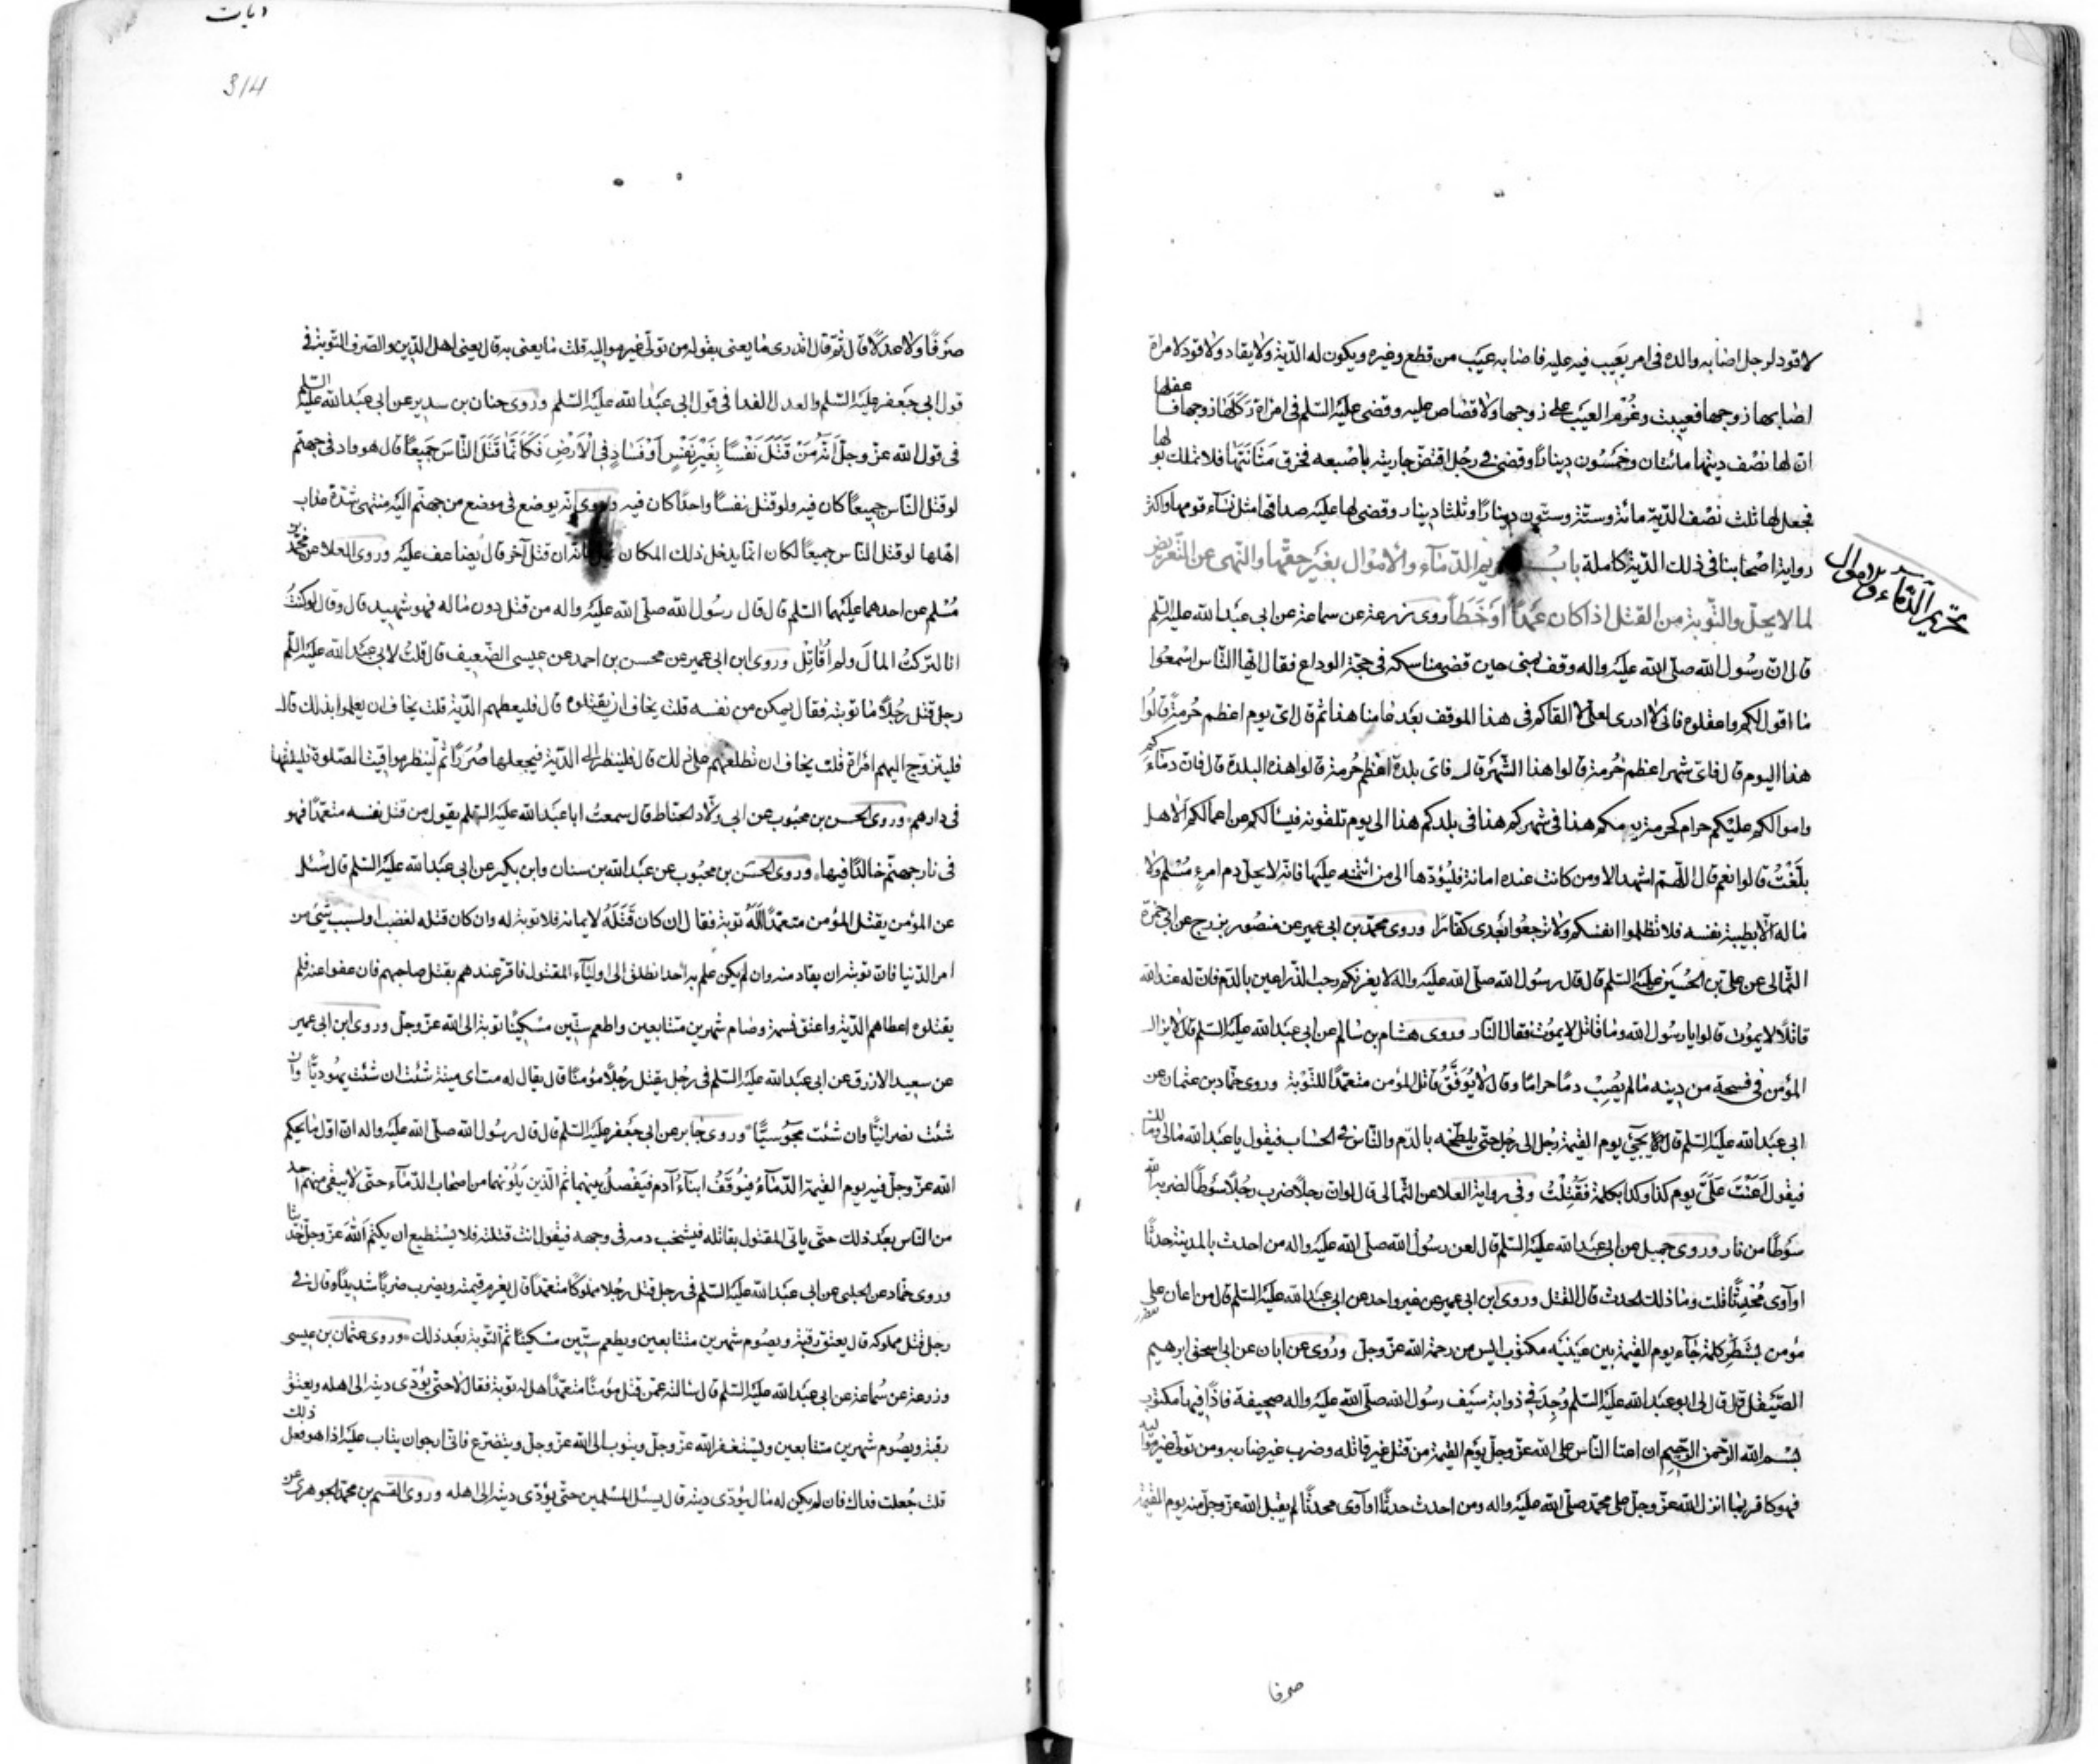 لا قود لرجل اصابه والده فى امر يعيب فيه عليه فاصابه عيب من قطع وغيره ويكون له الدّية ولا يقاد ولا قود لامراة
اصابها زوجها فعيبت وغُرم العيب على زوجها ولا قصاص عليه وقضى عليه السّلم فى امراة ركلها زوجها فا عفلها
انّ لها نصف ديتها مائتان وخمسون دينارًا وقضى فى رجل اقتضّ جارية باصبعه فخرق مثانتها فلا تملك بولها
فجعل لها ثلث نصف الدّية مائة وستّة وستّون دينارًا وثلثا دينار وقضى لها عليه صداقها مثل نسآء قومها واكثر
رواية اصحابنا فى ذلك الدّية كاملة باب تحريم الدّمآء والاموال بغير حقّها والنّهى عن التّعرض
تحريم الدّماء والاموال
لما لا يحلّ والتّوبة من القتل اذا كان عمدًا او خطأً روى زرعة عن سماعة عن ابى عبد الله عليه السّلم
قال انّ رسول الله صلّى الله عليه واله وقف بمنى حين قضى مناسكه فى حجّة الوداع فقال ايّها النّاس اسمعوا
ما اقول لكم واعقلوه فانّى لا ادرى لعلى لا القاكم فى هذا الموقف بعد عامنا هذا ثمّ قال اىّ يوم اعظم حُرمةً قالوا
هذا اليوم قال فاىّ شهر اعظم حُرمة قالوا هذا الشّهر قال فاى بلدة اعظم حُرمة قالوا هذه البلدة قال فانّ دمآءكم
واموالكم عليكم حرام كحرمة يومكم هذا فى شهركم هذا فى بلدكم هذا الى يوم تلقونه فيسألكم عن اعمالكم الا هل
بلّغت قالوا نعم قال اللّهمّ اشهد الا ومن كانت عنده امانة فليؤدّها الى من ائتمنه عليها فانّه لا يحلّ دم امرءٍ مُسلم ولا
ماله الّا بطيبة نفسه فلا تظلموا انفسكم ولا ترجعوا بعدى كفّارًا وروى محمّد بن ابى عمير عن منصور بزرج عن ابى حمزة
الثّمالى عن علىّ بن الحسين عليه السّلم قال قال رسول الله صلّى الله عليه واله لا يغرنّكم رحب الذّراعين بالدّم فان له عند الله
قاتلًا لا يموت قالوا يا رسول الله وما قاتل لا يموت فقال النّار وروى هشام بن سالم عن ابى عبد الله عليه السّلم قال لا يزال
المؤمن فى فسحة من دينه ما لم يُصِب دمًا حرامًا وقال لا يُوَفَّق قاتل المؤمن متعمّدًا للتّوبة وروى حمّاد بن عثمان عن
ابى عبد الله عليه السّلم قال يجئ يوم القيمة رجل الى رجل حتّى يلطّخه بالدّم والنّاس فى الحساب فيقول يا عبد الله مالى ولك
فيقول اَعَنْتَ علىّ يوم كذا وكذا بكلمة فقُتِلْتُ وفى رواية العلا عن الثّمالى قال لو انّ رجلًا ضرب رجلًا سوطًا لضربه الله
سَوطًا من نار وروى جميل عن ابى عبد الله عليه السّلم قال لعن رسول الله صلّى الله عليه واله من احدث بالمدينة حدثًا
او آوى مُحدِثًا قلت وما ذلك الحدث قال القتل وروى ابن ابى عمير عن غير واحد عن ابى عبد الله عليه السّلم قال من اعان على
مؤمن بشَطْرِ كلمة جآء يوم القيمة بين عينيه مكتوب آيس من رحمة الله عزّ وجلّ ورُوى عن ابان عن ابى اسحق ابرهيم
الصّيقل قال قال لى ابو عبد الله عليه السّلم وُجِدَ فى ذوابة سَيف رسول الله صلّى الله عليه واله صحيفة فاذًا فيها مكتوب
بسم الله الرّحمن الرّحيم ان اعتا النّاس على الله عزّ وجلّ يوم القيمة من قتل غير قاتله وضرب غير ضاربه ومن تولّى غير مواليه
فهو كافر بما انزل الله عزّ وجلّ على محمّد صلّى الله عليه واله ومن احدث حدثًا او آوى محدثًا لم يقبل الله عزّ وجلّ منه يوم القيمة
صرفا
ديات
314
صَرفًا ولا عدلًا قال ثمّ قال اتدرى ما يعنى بقوله من تولّى غير مواليه قلت ما يعنى به قال يعنى اهل الدّين والصّرف التّوبة فى
قول ابى جعفر عليه السّلم والعدل الفدا فى قول ابى عبد الله عليه السّلم وروى حنان بن سدير عن ابى عبد الله عليه السّلم
فى قول الله عزّ وجلّ انّه مَنْ قَتَلَ نَفْسًا بِغَيْرِ نَفْسٍ اَوْ فَسَادٍ فِى الْاَرْضِ فَكَاَنَّمَا قَتَلَ النَّاسَ جَمِيعًا قال هو واد فى جهنّم
لو قتل النّاس جميعًا كان فيه ولو قتل نفسًا واحدًا كان فيه وروى انّه يوضع فى موضع من جهنّم اليه منتهى شدّة عذاب
اهلها لو قتل النّاس جميعًا لكان انّما يدخل ذلك المكان قيل فانّه ان قتل آخر قال يضاعف عليه وروى العلا عن محمّد بن
مُسلم عن احدهما عليهما السّلم قال قال رسول الله صلّى الله عليه واله من قتل دون ماله فهو شهيد قال وقال لو كنتُ
انا لتركتُ المال ولم اُقاتِل وروى ابن ابى عمير عن محسن بن احمد عن عيسى الضّعيف قال قلت لابى عبد الله عليه السّلم
رجل قتل رجُلًا ما توبته فقال يمكن من نفسه قلت يخاف ان يقتلوه قال فليعطهم الدّية قلت يخاف ان يعلموا بذلك قال
فليتزوّج اليهم امراة قلت يخاف ان تطلعهم على ذلك قال فلينظر الى الدّية فيجعلها صُرَرًا ثمّ لينظر مواقيت الصّلوة فليلقها
فى دارهم وروى الحسن بن محبوب عن ابى ولّاد الحنّاط قال سمعتُ ابا عبد الله عليه السّلم يقول من قتل نفسه متعمّدًا فهو
فى نار جهنّم خالدًا فيها وروى الحسن بن محبوب عن عبد الله بن سنان وابن بكير عن ابى عبد الله عليه السّلم قال سُئل
عن المؤمن يقتل المؤمن متعمّدًا اَلَهُ توبة فقال ان كان قَتَلَهُ لايمانه فلا توبة له وان كان قتله لغضب او لسبب شئ من
امر الدّنيا فانّ توبته ان يقاد منه وان لم يكن علم به احد انطلق الى اوليآء المقتول فاقرّ عندهم بقتل صاحبهم فان عفوا عنه فلم
يقتلوه اعطاهم الدّية واعتق نسمة وصام شهرين متتابعين واطعم ستّين مسكينًا توبة الى الله عزّ وجلّ وروى ابن ابى عمير
عن سعيد الازرق عن ابى عبد الله عليه السّلم فى رجل يقتل رجُلًا مؤمنًا قال يقال له مت اى ميتة شئت ان شئت يهوديًّا وان
شئت نصرانيًّا وان شئت مجوسيًّا وروى جابر عن ابى جعفر عليه السّلم قال قال رسول الله صلّى الله عليه واله انّ اوّل ما يحكم
الله عزّ وجلّ فيه يوم القيمة الدّمآءُ فيُوقَفُ ابنآءُ آدم فيَفْصِلُ بينهما ثمّ الّذين يلونهما من اصحاب الدّمآء حتّى لا يبقى منهم احد
من النّاس بعد ذلك حتّى ياتى المقتول بقاتله فيشخب دمه فى وجهه فيقول انت قتلته فلا يستطيع ان يكتم الله عزّ وجلّ حديثًا
وروى حمّاد عن الحلبى عن ابى عبد الله عليه السّلم فى رجل قتل رجُلا مملوكًا متعمّدًا قال يغرم قيمته ويضرب ضربًا شديدًا وقال فى
رجل قتل مملوكه قال يعتق رقبة ويصوم شهرين متتابعين ويطعم ستّين مسكينًا ثمّ التّوبة بعد ذلك وروى عثمان بن عيسى
وزرعة عن سماعة عن ابى عبد الله عليه السّلم قال سالته عمّن قتل مؤمنًا متعمّدًا هل له توبة فقال لا حتّى يؤدّى ديته الى اهله ويعتق
رقبة ويصوم شهرين متتابعين ويستغفر الله عزّ وجلّ ويتوب الى الله عزّ وجلّ ويتضرّع فانّى ارجو ان يتاب عليه اذا هو فعل ذلك
قلت جُعلت فداك فان لم يكن له مال يُؤدّى ديته قال يسئل المسلمين حتّى يؤدّى ديته الى اهله وروى القسم بن محمّد الجوهرى عن